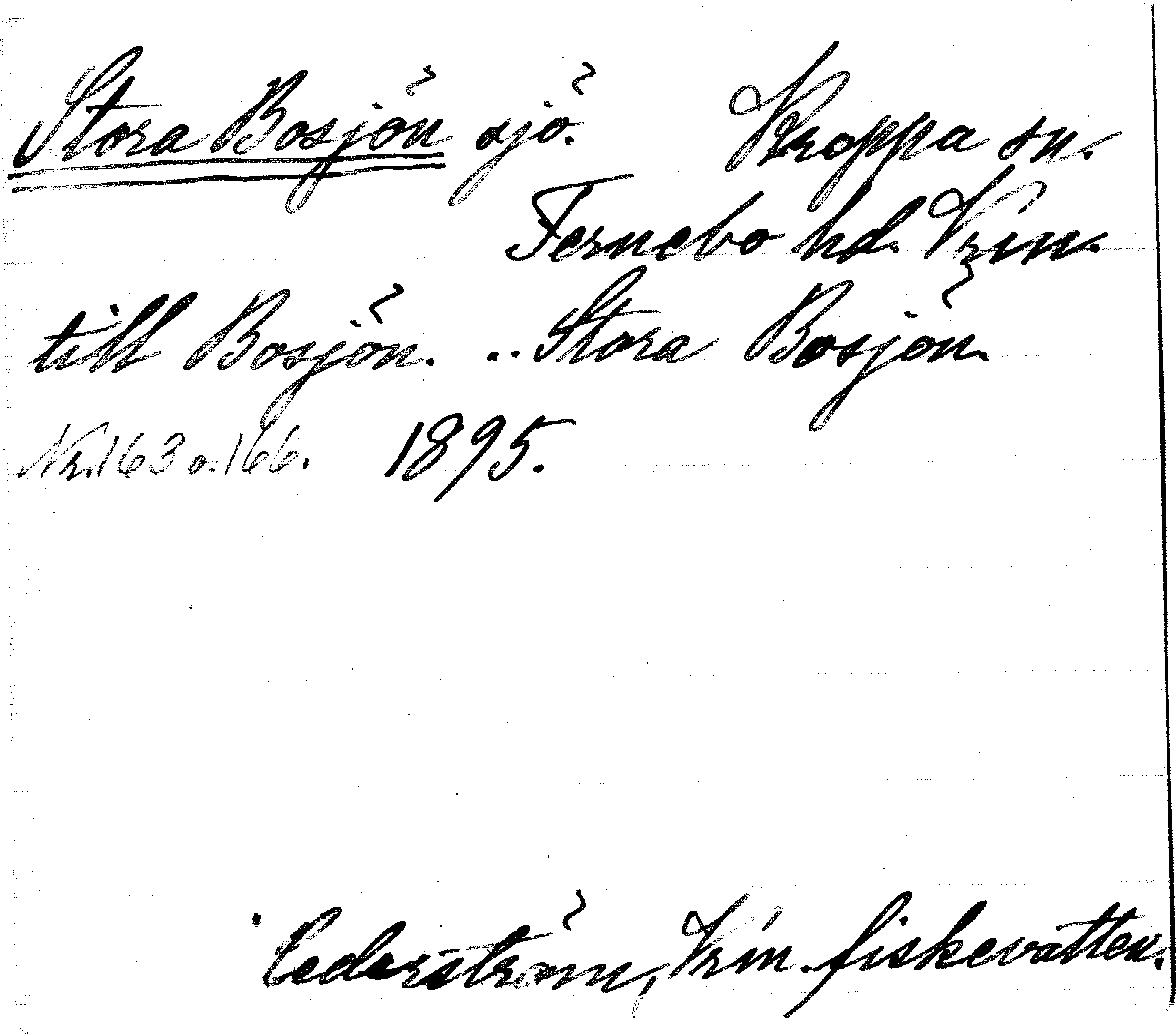 Stora Bosjön sjö. Kroppa sn.
Fernebo hd. Vrml.
till Bosjön. .. Stora Bosjön.
Nr. 163 o. 166. 1895.
Cederström, Vrml. fiskevatten.